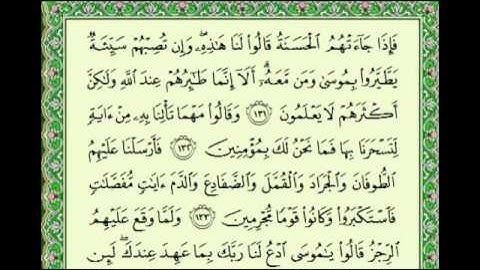 فَإِذَا جَآءَتْهُمُ ٱلْحَسَنَةُ قَالُوا۟ لَنَا هَـٰذِهِۦ ۖ وَإِن تُصِبْهُمْ سَيِّئَةٌ
يَطَّيَّرُوا۟ بِمُوسَىٰ وَمَن مَّعَهُۥٓ ۗ أَلَآ إِنَّمَا طَـٰٓئِرُهُمْ عِندَ ٱللَّهِ وَلَـٰكِنَّ
أَكْثَرَهُمْ لَا يَعْلَمُونَ ١٣١ وَقَالُوا۟ مَهْمَا تَأْتِنَا بِهِۦ مِنْ ءَايَةٍ
لِّتَسْحَرَنَا بِهَا فَمَا نَحْنُ لَكَ بِمُؤْمِنِينَ ١٣٢ فَأَرْسَلْنَا عَلَيْهِمُ
ٱلطُّوفَانَ وَٱلْجَرَادَ وَٱلْقُمَّلَ وَٱلضَّفَادِعَ وَٱلدَّمَ ءَايَـٰتٍ مُّفَصَّلَـٰتٍ
فَٱسْتَكْبَرُوا۟ وَكَانُوا۟ قَوْمًا مُّجْرِمِينَ ١٣٣ وَلَمَّا وَقَعَ عَلَيْهِمُ
ٱلرِّجْزُ قَالُوا۟ يَـٰمُوسَى ٱدْعُ لَنَا رَبَّكَ بِمَا عَهِدَ عِندَكَ ۖ لَئِن